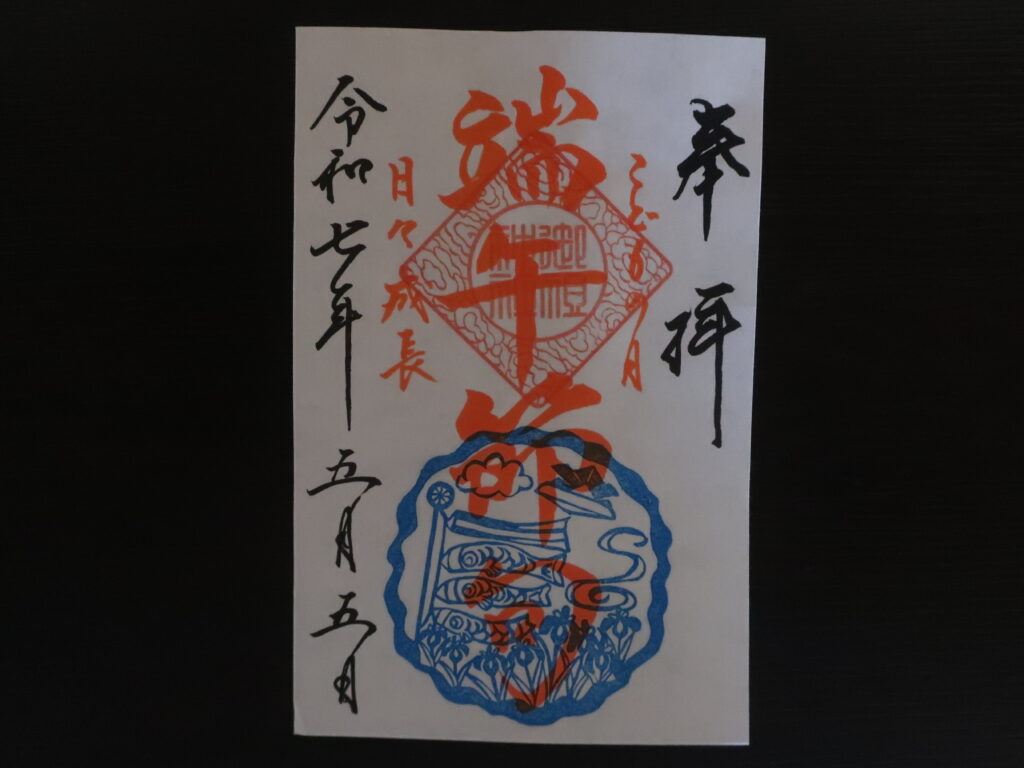 奉拝
こどもの日
端午節句
日々成長
令和七年五月五日